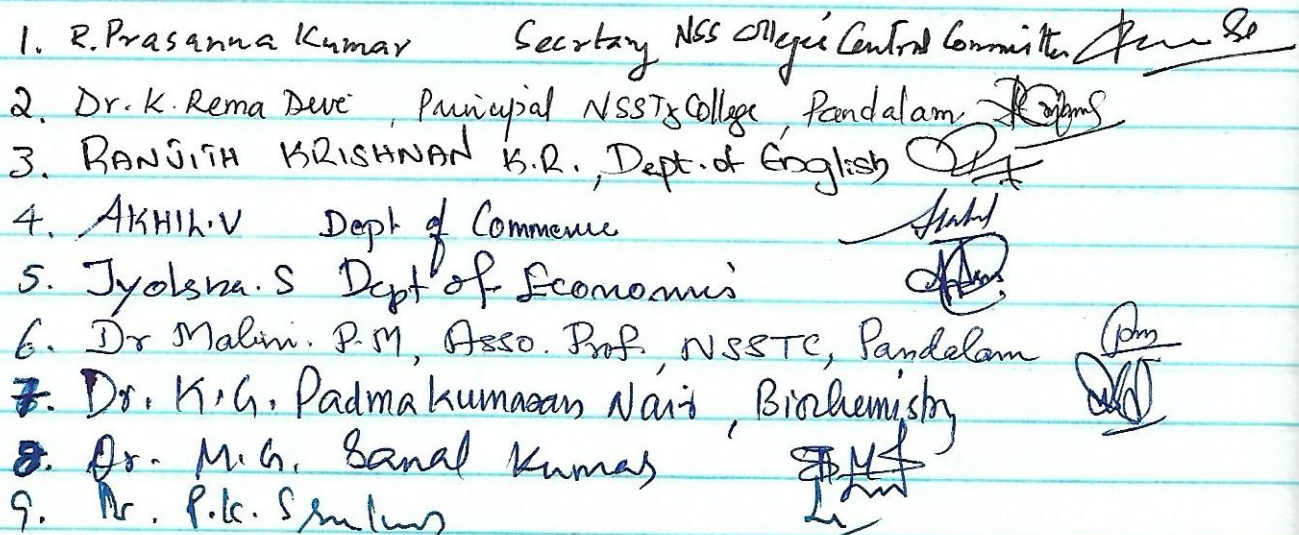 1. R. Prasanna Kumar Secrtary NSS College Central Committee
2. Dr. K. Rema Devi, Principal NSS Tg College, Pandalam
3. RANJITH KRISHNAN K.R., Dept. of English
4. AKHIL.V Dept of Commerce
5. Jyolsna. S Dept of Economis
6. Dr Malini. P.M, Asso. Prof., NSSTC, Pandalam
7. Dr. K.G. Padmakumaran Nair, Biochemistry
8. Dr. M.G. Sanal Kumar
9. Dr. P.K.